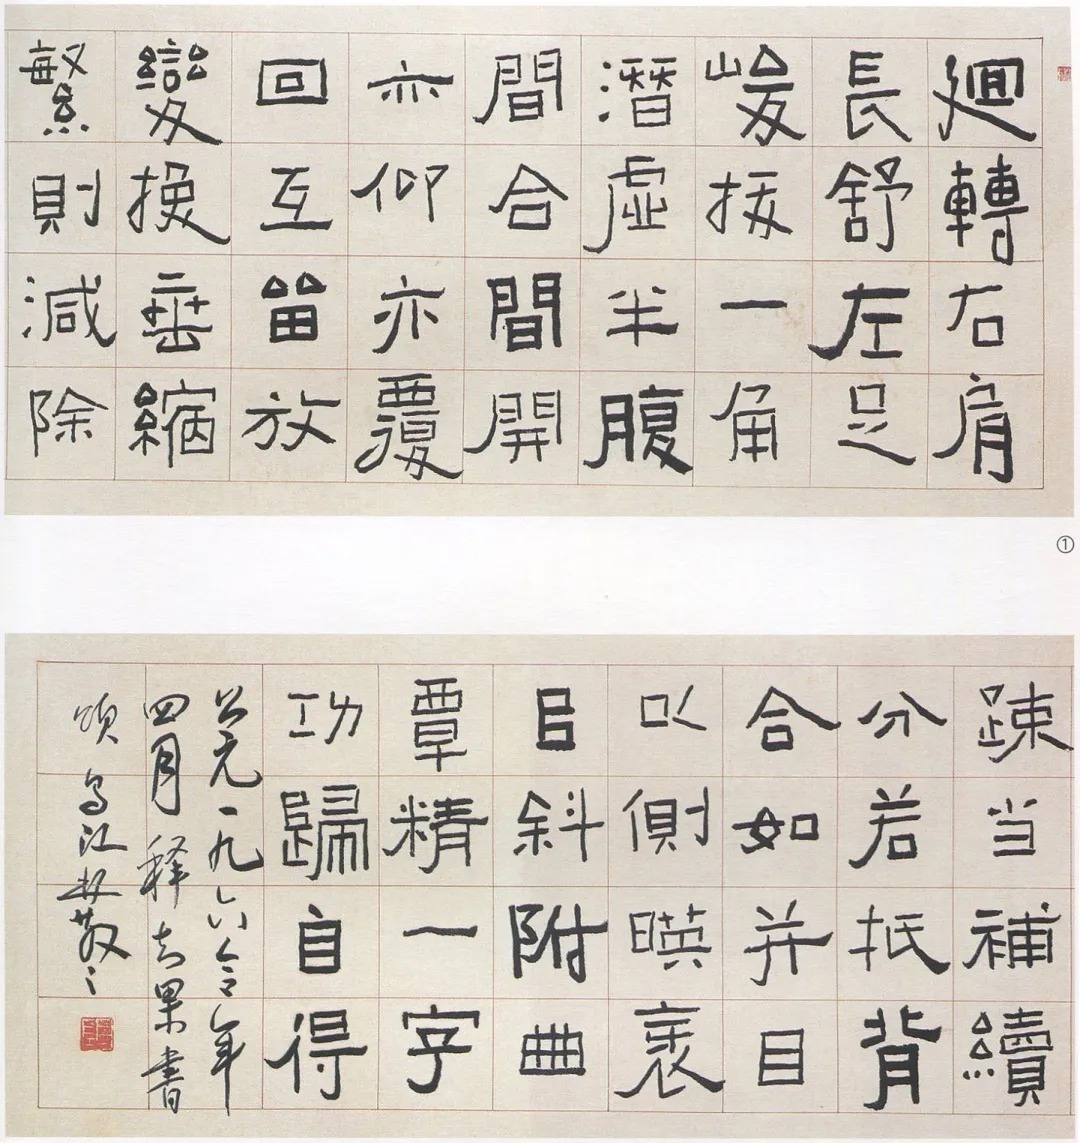 迴轉右肩
長舒左足
峻拔一角
潛虛半腹
間合間開
亦仰亦覆
回互留放
變換垂縮
繁則減除
①
疎当補續
分若抵背
合如并目
以側映衺
㠯斜附曲
覃精一字
功歸自得
公元一九六令年
四月释智果書
頌 烏江林散之